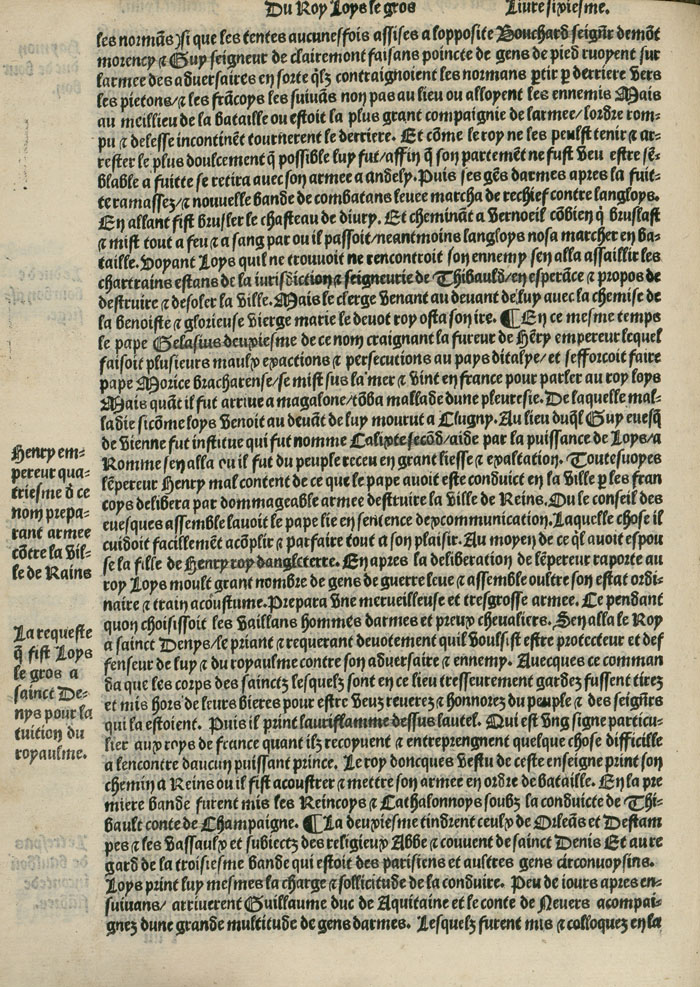 Du Roy Loys le gros
Liure sixiesme.
les normãs) si que les tentes aucuneffois assises a lopposite Bouchard seigñr demõt
morency ⁊ Guy seigneur de clairemont faisans poincte de gens de pied ruoyent sur
larmee des aduersaires en sorte q̃lz contraignoient les normans ptir p derriere vers
les pietons/⁊ les frãcoys les suiuãs non pas au lieu ou alloyent les ennemis Mais
au meillieu de la bataille ou estoit la plus grant compaignie de larmee/lordre rom-
pu ⁊ delesse incontinẽt tournerent le derriere. Et cõme le roy ne les peulst tenir ⁊ ar-
rester le plus doulcement q̃ possible luy fut/affin q̃ son partemẽt ne fust veu estre sẽ-
blable a fuitte se retira auec son armee a andely. Puis ses gẽs darmes apres la fuit-
te ramassez/⁊ nouuelle bande de combatans leuee marcha de rechief contre langloys.
En allant fist brusler le chasteau de diury. Et cheminãt a Vernoeil cõbien q̃ bruslast
⁊ mist tout a feu ⁊ a sang par ou il passoit/neantmoins langloys nosa marcher en ba-
taille. Voyant Loys quil ne trouuoit ne rencontroit son ennemy sen alla assaillir les
chartrains estans de la iurisdiction ⁊ seigneurie de Thibauld/en esperãce ⁊ propos de
destruire ⁊ desoler la ville. Mais le clerge venant au deuant de luy auec la chemise de
la benoiste ⁊ glorieuse vierge marie le deuot roy osta son ire. ¶ En ce mesme temps
le pape Gelasius deuxiesme de ce nom craignant la fureur de Hẽry empereur lequel
faisoit plusieurs maulx exactions ⁊ persecutions au pays ditalye/et sefforcoit faire
pape Morice bracharense/se mist sus la mer ⁊ vint en france pour parler au roy loys
Mais quãt il fut arriue a magalone/tõba mallade dune pleuresie. De laquelle mal-
ladie sicõme loys venoit au deuãt de luy mourut a Clugny. Au lieu duq̃l Guy euesq̃
de vienne fut institue qui fut nomme Calixte secõd/aide par la puissance de Loys/a
Romme sen alla ou il fut du peuple receu en grant liesse ⁊ exaltation. Toutesuoyes
lẽpereur Henry mal content de ce que le pape auoit este conduict en la ville p les fran
coys delibera par dommageable armee destruire la ville de Reins. Ou le conseil des
euesques assemble lauoit le pape lie en sentence dexcommunication. Laquelle chose il
cuidoit facillemẽt acõplir ⁊ parfaire tout a son plaisir. Au moyen de ce q̃l auoit espou
se la fille de Henry roy dangleterre. En apres la deliberation de lẽpereur raporte au
roy Loys moult grant nombre de gens de guerre leue ⁊ assemble oultre son estat ordi-
naire ⁊ train acoustume. Prepara vne merueilleuse et tresgrosse armee. Ce pendant
quon choisissoit les vaillans hommes darmes et preux cheualiers. Sen alla le Roy
a sainct Denys/le priant ⁊ requerant deuotement quil voulsist estre protecteur et def
fenseur de luy ⁊ du royaulme contre son aduersaire ⁊ ennemy. Auecques ce comman
da que les corps des sainctz lesquelz sont en ce lieu tresseurement gardez fussent tirez
et mis hors de leurs bieres pour estre veuz reuerez ⁊ honnorez du peuple ⁊ des seigñrs
qui la estoient. Puis il print lauriflamme dessus lautel. Qui est vng signe particu-
lier aux roys de france quant ilz recoyuent ⁊ entreprengnent quelque chose difficille
a lencontre daucun puissant prince. Le roy doncques vestu de ceste enseigne print son
chemin a Reins ou il fist acoustrer ⁊ mettre son armee en ordre de bataille. En la pre
miere bande furent mis les Reincoys ⁊ Cathalonnoys soubz la conduicte de Thi-
bault conte de Champaigne. ¶ La deuxiesme tindrent ceulx de Orleãs et Destam
pes ⁊ les vassaulx et subiectz des religieux Abbe ⁊ couuent de sainct Denis Et au re
gard de la troisiesme bande qui estoit des parisiens et aultres gens circonuoysins.
Loys print luy mesmes la charge ⁊ sollicitude de la conduire. Peu de iours apres en-
suiuans/ arriuerent Guillaume duc de Aquitaine et le conte de Neuers acompai-
gnez dune grande multitude de gens darmes. Lesquelz furent mis ⁊ colloquez en la
Henry em-
pereur qua-
triesme d̃ ce
nom prepa-
rant armee
cõtre la vil-
le de Rains
La requeste
q̃ fist Loys
le gros a
sainct De-
nys pour la
tuition du
royaulme.